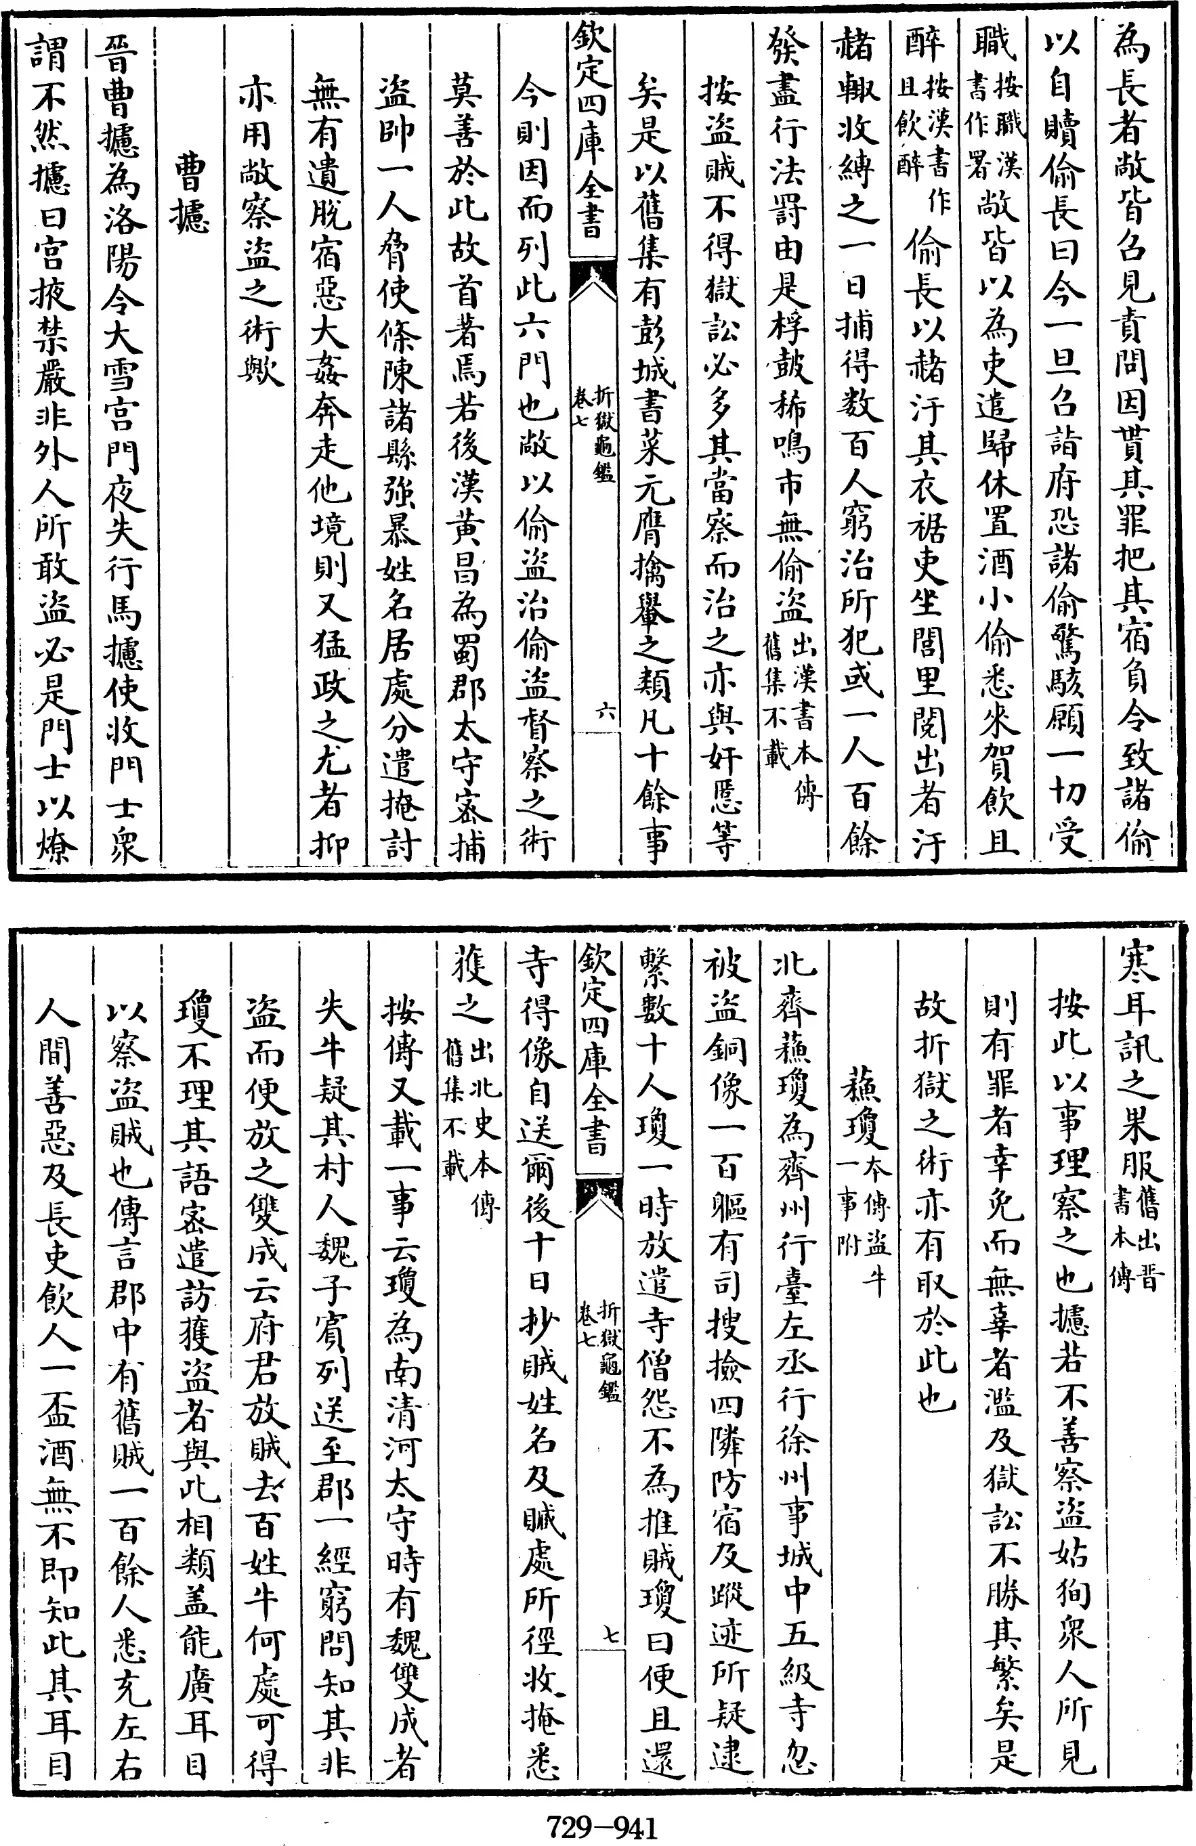 為長者敞皆召見責問因貰其罪把其宿負令致諸偷
以自贖偷長曰今一旦召詣府恐諸偷驚駭願一切受
職按職漢書作署敞皆以為吏遣歸休置酒小偷悉來賀飲且
醉按漢書作且飲醉偷長以赭汙其衣裾吏坐閭里閱出者汙
赭輙收縛之一日捕得數百人窮治所犯或一人百餘
發盡行法罰由是枹鼓稀鳴市無偷盜出漢書本傳舊集不載
按盜賊不得獄訟必多其當察而治之亦與奸慝等
矣是以舊集有彭城書菜元膺擒轝之類凡十餘事
欽定四庫全書
折獄龜鑑
卷七
六
今則因而列此六門也敞以偷盜治偷盜督察之術
莫善於此故首著焉若後漢黃昌為蜀郡太守宻捕
盜帥一人脅使條陳諸縣強暴姓名居處分遣掩討
無有遺脫宿惡大姦奔走他境則又猛政之尤者抑
亦用敞察盜之術歟
曹攄
晉曹攄為洛陽令大雪宮門夜失行馬攄使收門士衆
謂不然攄曰宮掖禁嚴非外人所敢盜必是門士以燎
寒耳訊之果服舊出晋書本傳
按此以事理察之也攄若不善察盜姑狥衆人所見
則有罪者幸免而無辜者濫及獄訟不勝其繁矣是
故折獄之術亦有取於此也
蘓瓊本傳盜牛一事附
北齊蘓瓊為齊州行臺左丞行徐州事城中五級寺忽
被盜銅像一百軀有司搜撿四隣防宿及蹤迹所疑逮
繫數十人瓊一時放遣寺僧怨不為推賊瓊曰便且還
欽定四庫全書
折獄龜鑑
卷七
七
寺得像自送爾後十日抄賊姓名及贓處所徑收掩悉
獲之出北史本傳舊集不載
按傳又載一事云瓊為南清河太守時有魏雙成者
失牛疑其村人魏子賔列送至郡一經窮問知其非
盜而便放之雙成云府君放賊去百姓牛何處可得
瓊不理其語宻遣訪獲盜者與此相類盖能廣耳目
以察盜賊也傳言郡中有舊賊一百餘人悉充左右
人間善惡及長吏飲人一盃酒無不即知此其耳目
729-941